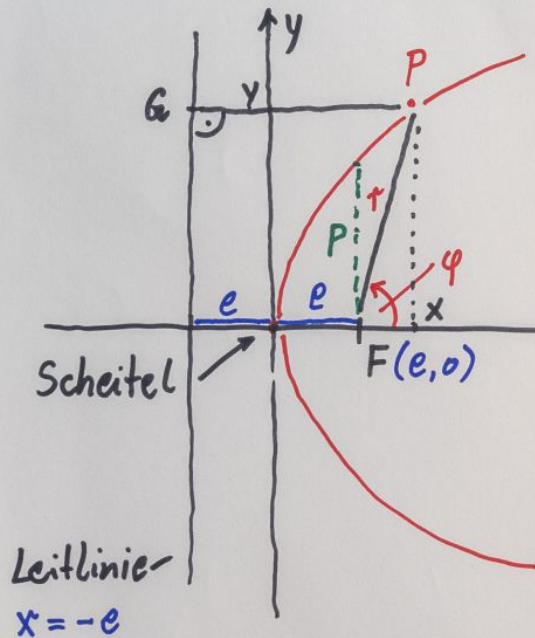 y
P
G
y
r
p
φ
e
e
x
Scheitel
F(e,0)
Leitlinie
x = -e